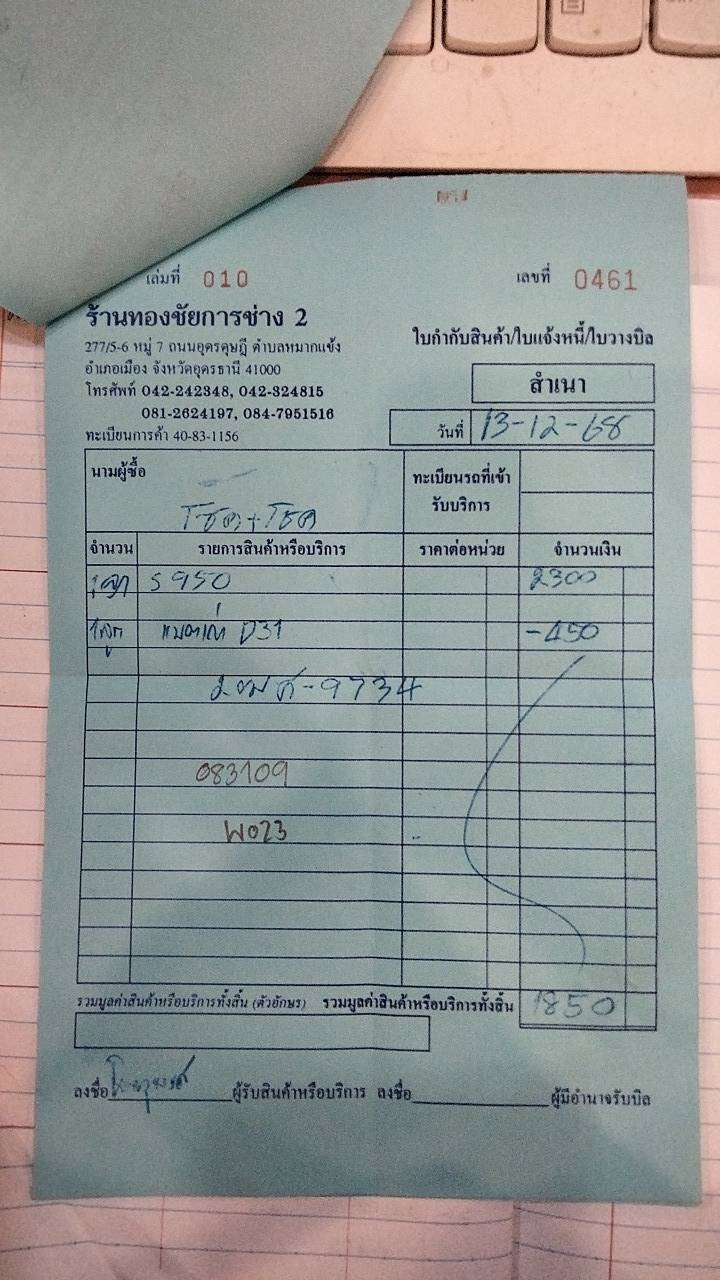 เล่มที่ 010 เลขที่ 0461
ร้านทองชัยการช่าง 2
277/5-6 หมู่ 7 ถนนอุดรดุษฎี ตำบลหมากแข้ง
อำเภอเมือง จังหวัดอุดรธานี 41000
โทรศัพท์ 042-242348, 042-324815
081-2624197, 084-7951516
ทะเบียนการค้า 40-83-1156
ใบกำกับสินค้า/ใบแจ้งหนี้/ใบวางบิล
สำเนา
วันที่ 13-12-68
นามผู้ซื้อ โชค+โชค
ทะเบียนรถที่เข้า
รับบริการ
จำนวน รายการสินค้าหรือบริการ ราคาต่อหน่วย จำนวนเงิน
1ลูก S 950 2300
1ลูก แบตเก่า D31 -450
-9734
083109
W023
รวมมูลค่าสินค้าหรือบริการทั้งสิ้น (ตัวอักษร) รวมมูลค่าสินค้าหรือบริการทั้งสิ้น 1850
ลงชื่อ ผู้รับสินค้าหรือบริการ ลงชื่อ ผู้มีอำนาจรับบิล